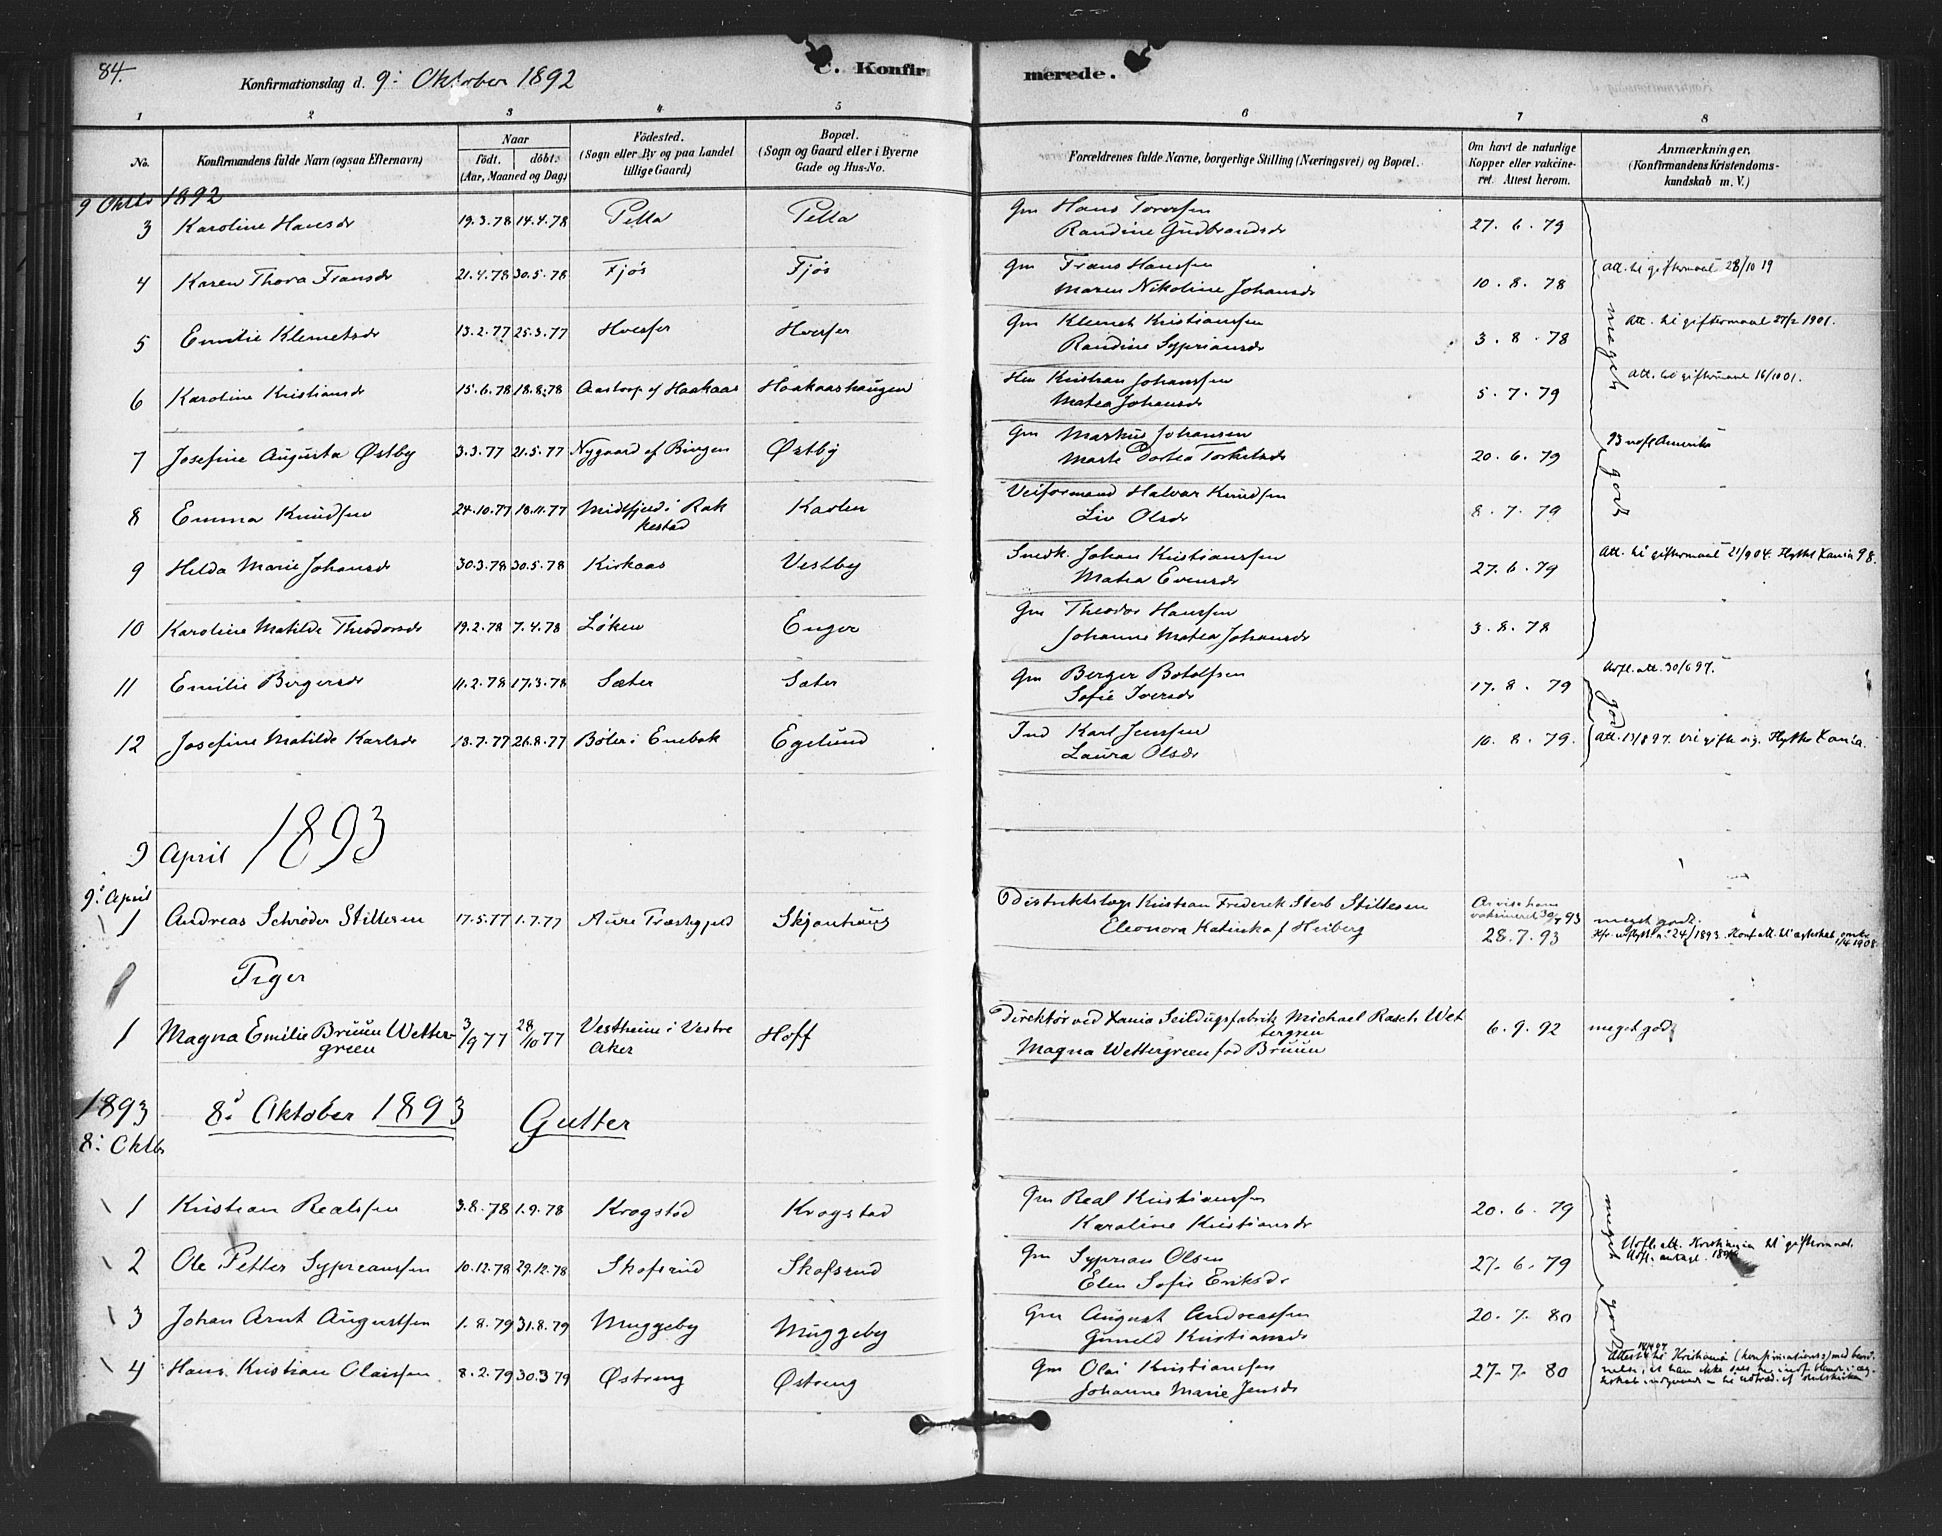 84.
Konfirmationsdag d. 9: Oktober 1892
C. Konfirmerede.
1 2 3 4 5 6 7 8
No.
Konfirmandens fulde Navn (ogsaa Efternavn)
Naar
födt. döbt.
(Aar, Maaned og Dag)
Födested.
(Sogn eller By og paa Landet
tillige Gaard)
Bopæl.
(Sogn og Gaard eller i Byerne
Gade og Hus-No.
Forældrenes fulde Navne, borgerlige Stilling (Næringsvei) og Bopæl.
Om havt de naturlige
Kopper eller vakcine-
ret. Attest herom.
Anmærkninger.
(Konfirmandens Kristendoms-
kundskab m. V.)
9 Oktbr 1892
3 Karoline Hansdr 19.3.78 14.4.78 Pella Pella Gm Hans Torersen
Randine Gudbrandsdr 27.6.79
4 Karen Thora Fransdr 21.4.78 30.5.78 Fjøs Fjøs Gm Frans Hanssen
Maren Nikoline Johansdr 10.8.78 Att. til giftermaal 28/10 19
5 Emilie Klemetsdr 13.2.77 25.3.77 Gm Klemet Kristianssen
Randine Sypriansdr 3.8.78 Att. til giftermaal 27/2 1901.
6 Karoline Kristiansdr 15.6.78 18.8.78 Aastorp af Haakaas Haakaashaugen Hm Kristian Johanssen
Matea Johansdr 5.7.79 Att. til giftermaal 16/10 01.
meget
7 Josefine Augusta Østby 3.3.77 21.5.77 Nygaard af Bingen Østby Gm Markus Johansen
Marte Dortea Torkelsdr 20.6.79 93 udfl. Amerika
godt
8 Emma Knudsen 24.10.77 18.11.77 Midtfjeld i Rak
kestad Kasten Veiformand Halvor Knudsen
Liv Olsdr 8.7.79
9 Hilda Marie Johansdr 30.3.78 30.5.78 Kirkaas Vestby Snedk. Johan Kristianssen
Matea Evensdr 27.6.79 Att. til giftermaal 21/9 04. Flyttet Xania 98.
10 Karoline Matilde Theodorsdr 19.2.78 7.4.78 Løken Enger Gm Theodor Hanssen
Johanne Matea Johansdr 3.8.78
11 Emilie Bergersdr 11.2.78 17.3.78 Sæter Sæter Gm Berger Botolfsen
Sofie Iversdr 17.8.79 Udfl. att. 30/6 97.
godt
12 Josefine Matilde Karlsdr 18.7.77 26.8.77 Bøler i Enebak Egelund Ind Karl Jenssen
Laura Olsdr 10.8.79. Att. 13/8 97. til gifte sig. Flytter Xania.
9 April 1893
9: April
1 Andreas Schrøder Stillesen 17.5.77 1.7.77 Aure Præstegjeld Skjønhaug Distriktslæge Kristian Frederik Sterb Stillesen
Eleonora Katinka f Heiberg 28.7.93 meget godt.
Piger
1 Magna Emilie Bruun Wetter-
green 3/9 77 28/10 77 Vestheim i Vestre
Aker Hoff Direktør ved Xania Seildugsfabrik Michael Rasch Wet
tergreen
Magna Wettergreen fød Bruun 6.9.92 meget godt
1893 8: Oktober 1893 Gutter
8: Oktbr
1 Kristian Realssen 3.8.78 1.9.78 Krogstad Krogstad Gm Real Kristianssen
Karoline Kristiansdr 20.6.79 meget
2 Ole Petter Syprianssen 10.12.78 29.12.78 Skofsrud Skofsrud Gm Syprian Olsen
Elen Sofie Eriksdr 27.6.79 Udfl. att. Kristiania til giftermaal.
3 Johan Arnt Augustsen 1.8.79 31.8.79 Muggeby Muggeby Gm August Andreassen
Gunild Kristiansdr 20.7.80 godt
4 Hans Kristian Olaissen 8.2.79 30.3.79 Østreng Østreng Gm Olai Kristianssen
Johanne Marie Jensdr 27.7.80